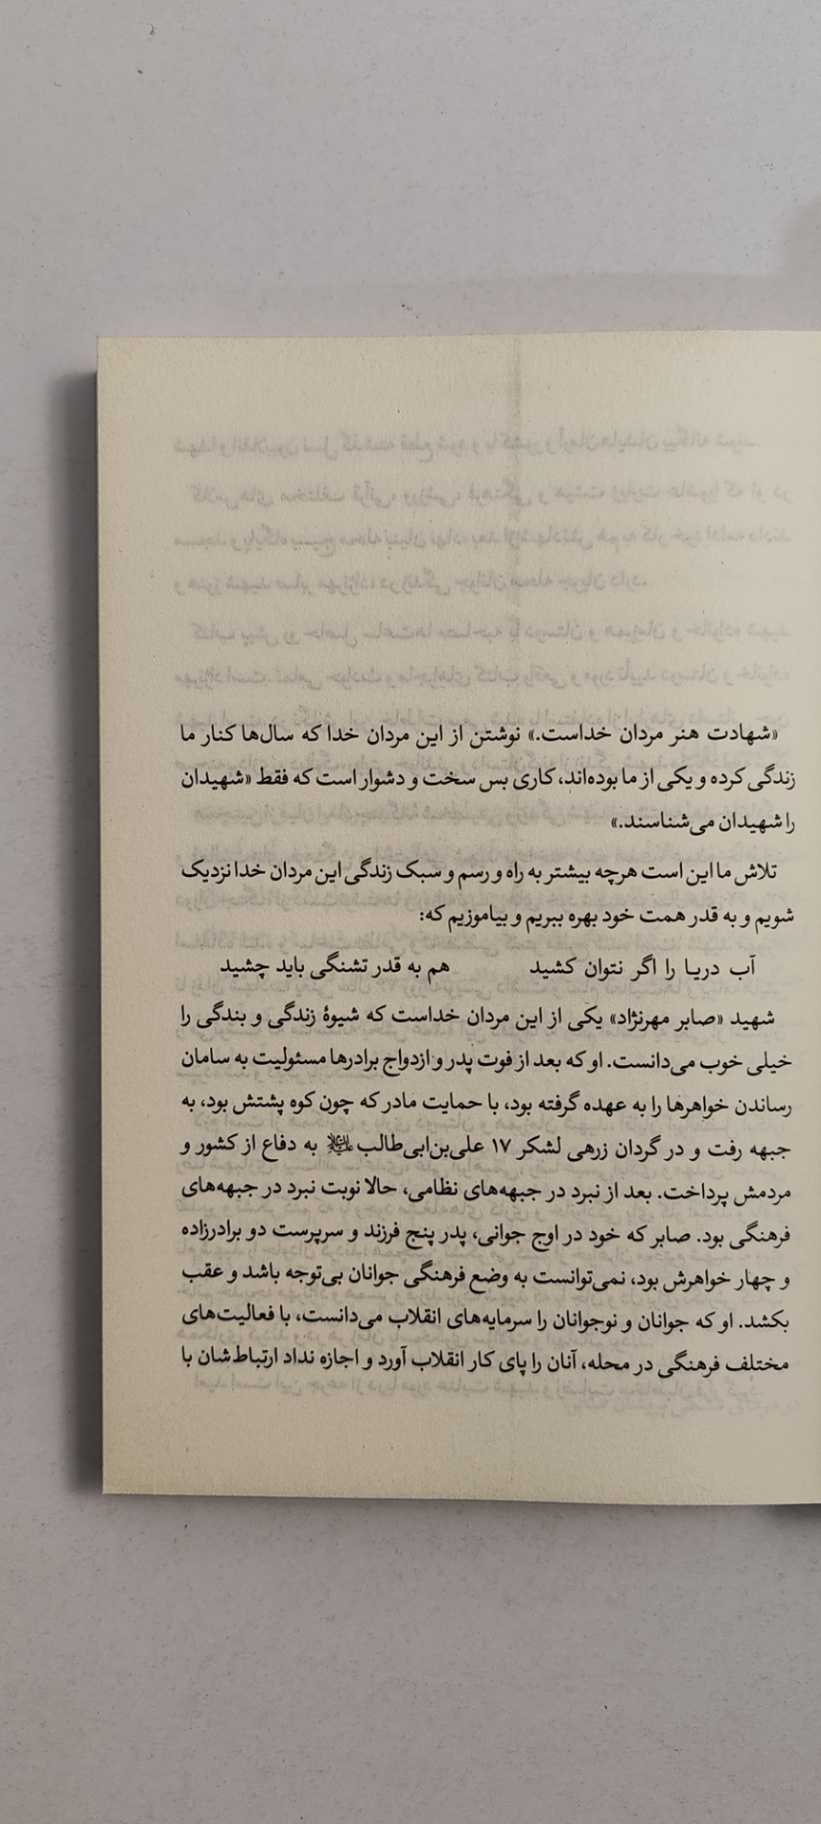 «شهادت هنر مردان خداست.» نوشتن از این مردان خدا که سال‌ها کنار ما
زندگی کرده و یکی از ما بوده‌اند، کاری بس سخت و دشوار است که فقط «شهیدان
را شهیدان می‌شناسند.»
تلاش ما این است هرچه بیشتر به راه و رسم و سبک زندگی این مردان خدا نزدیک
شویم و به قدر همت خود بهره ببریم و بیاموزیم که:
آب دریا را اگر نتوان کشید هم به قدر تشنگی باید چشید
شهید «صابر مهرنژاد» یکی از این مردان خداست که شیوهٔ زندگی و بندگی را
خیلی خوب می‌دانست. او که بعد از فوت پدر و ازدواج برادرها مسئولیت به سامان
رساندن خواهرها را به عهده گرفته بود، با حمایت مادر که چون کوه پشتش بود، به
جبهه رفت و در گردان زرهی لشکر ۱۷ علی‌بن‌ابی‌طالب علیه‌السلام به دفاع از کشور و
مردمش پرداخت. بعد از نبرد در جبهه‌های نظامی، حالا نوبت نبرد در جبهه‌های
فرهنگی بود. صابر که خود در اوج جوانی، پدر پنج فرزند و سرپرست دو برادرزاده
و چهار خواهرش بود، نمی‌توانست به وضع فرهنگی جوانان بی‌توجه باشد و عقب
بکشد. او که جوانان و نوجوانان را سرمایه‌های انقلاب می‌دانست، با فعالیت‌های
مختلف فرهنگی در محله، آنان را پای کار انقلاب آورد و اجازه نداد ارتباط‌شان با